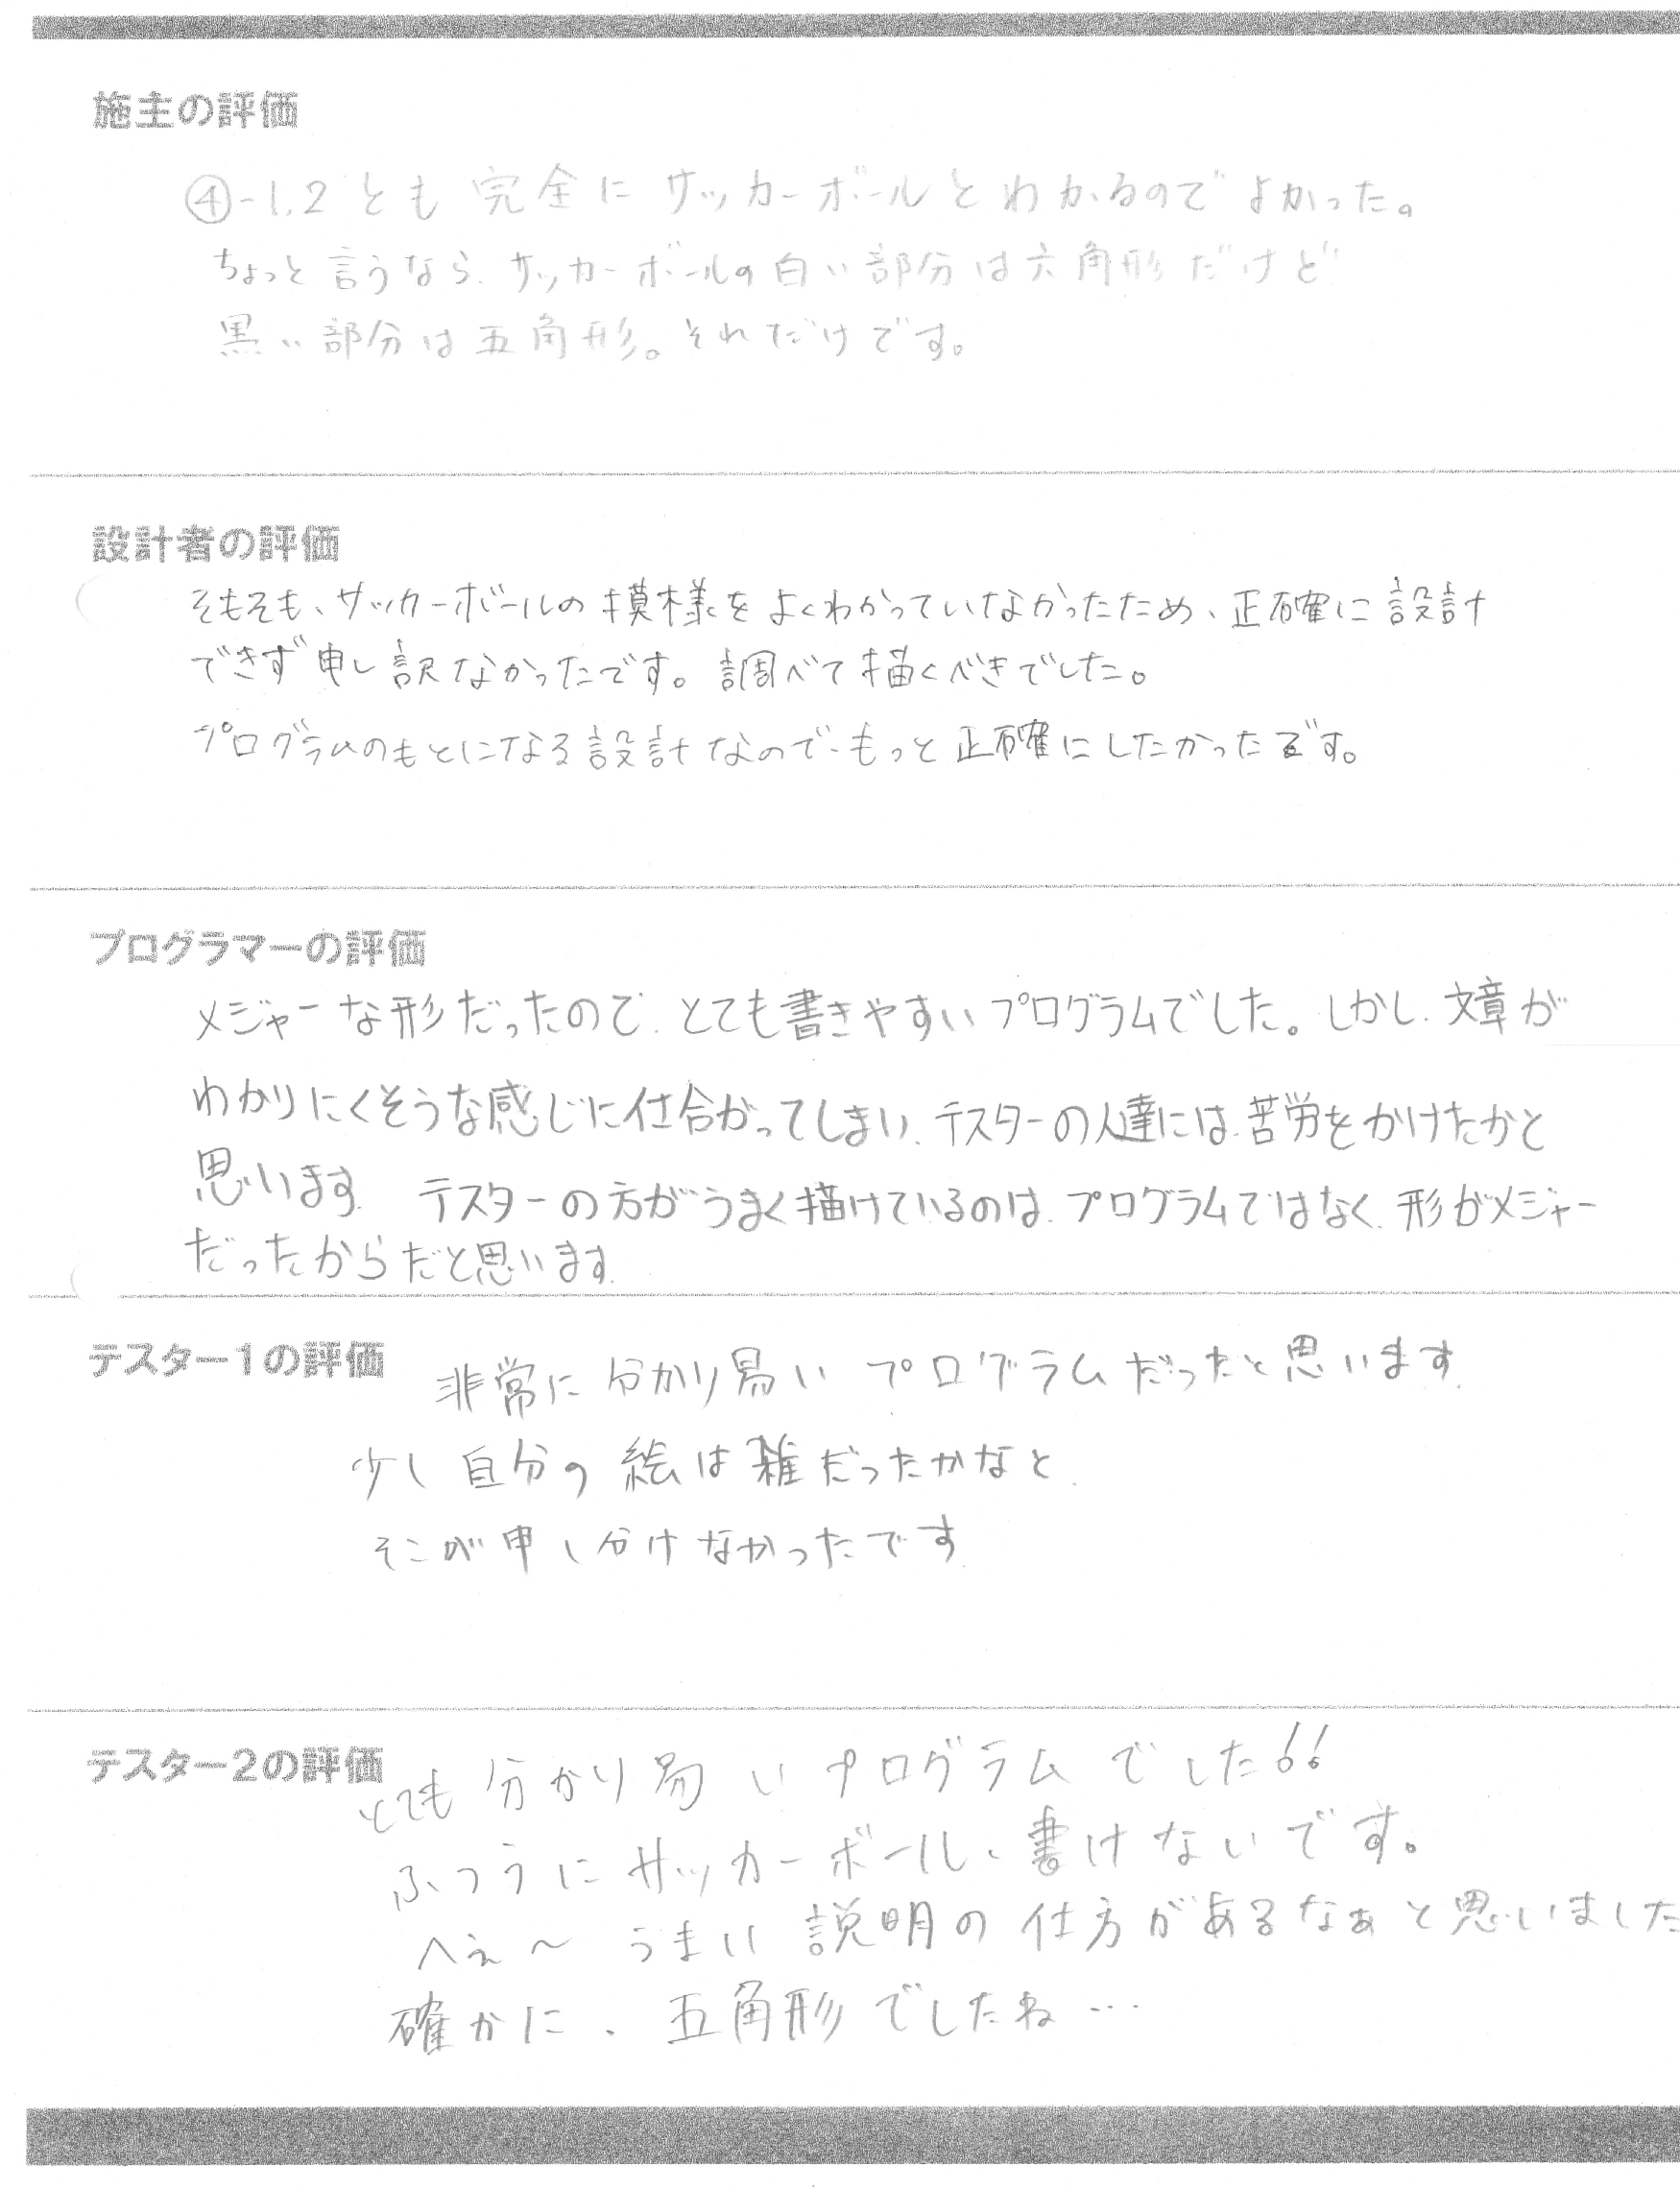 施主の評価
④-1.2 とも 完全に サッカーボールとわかるのでよかった。
ちょっと言うなら、サッカーボールの白い部分は六角形だけど
黒い部分は五角形。それだけです。
設計者の評価
そもそも、サッカーボールの模様をよくわかっていなかったため、正確に設計
できず申し訳なかったです。調べて描くべきでした。
プログラムのもとになる設計なので、もっと正確にしたかったです。
プログラマーの評価
メジャーな形だったので、とても書きやすいプログラムでした。しかし、文章が
わかりにくそうな感じに仕合がってしまい、テスターの人達には、苦労をかけたかと
思います。 テスターの方がうまく描けているのは、プログラムではなく、形がメジャー
だったからだと思います。
テスター1の評価
非常に分かり易いプログラムだったと思います。
少し自分の絵は雑だったかなと、
そこが申し分けなかったです
テスター2の評価
とても分かり易いプログラムでした!!
ふつうにサッカーボール、書けないです。
へぇ〜 うまい説明の仕方があるなぁと思いました
確かに、五角形でしたね…